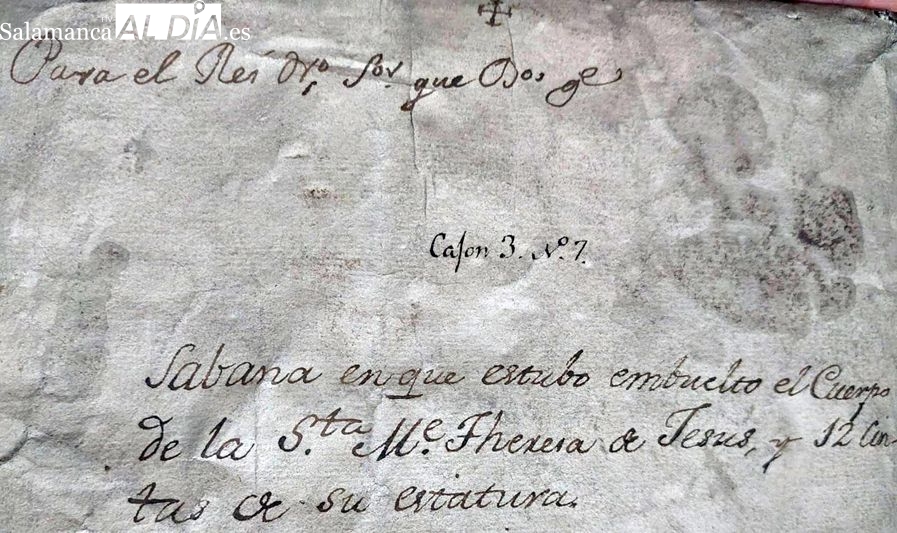 Salamanca ALDÍA.es
Para el Rei Nro Sor. que Dos ge
Cajon 3. No. 7.
Sabana en que estubo embuelto el Cuerpo
de la S.ta Me. Theresa de Jesus, y 12 Cin-
tas de su estatura.